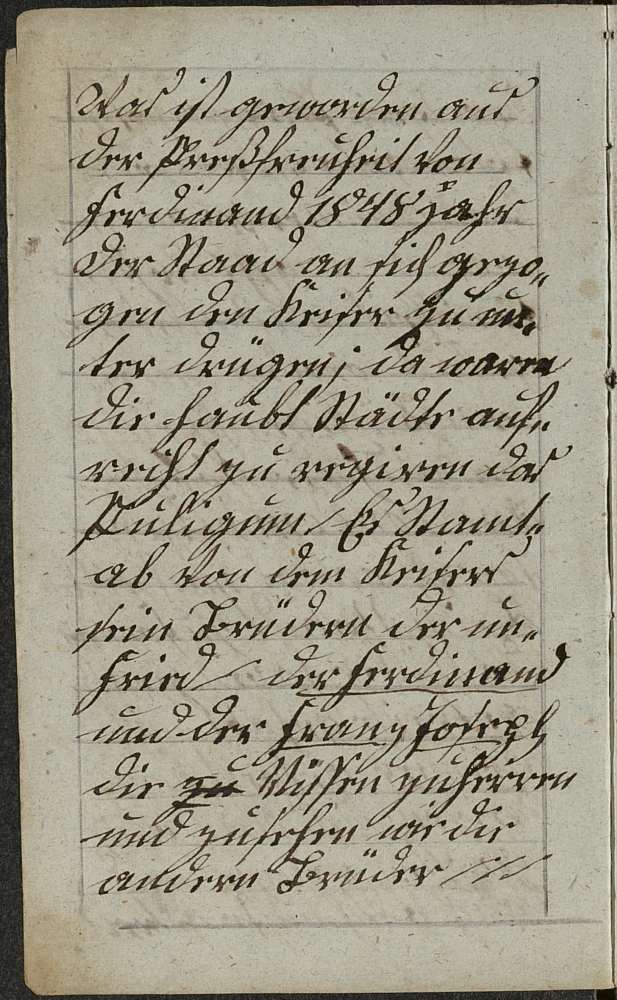 Was ist geworden aus
der Preßfreuheit von
Ferdinand 1848 Jahr
Der Staad an sich gezo„
gen den Keiser zu un„
ter drügen; da waren
die haubt Städte auf„
recht zu regiren das
Puligum. Es Stamt„
ab von dem Keisers
sein Brüdern der un„
fried der Ferdinand
und der Franz Joseph
die zu Wissen zuherren
und zusehen wie die
andern Brüder